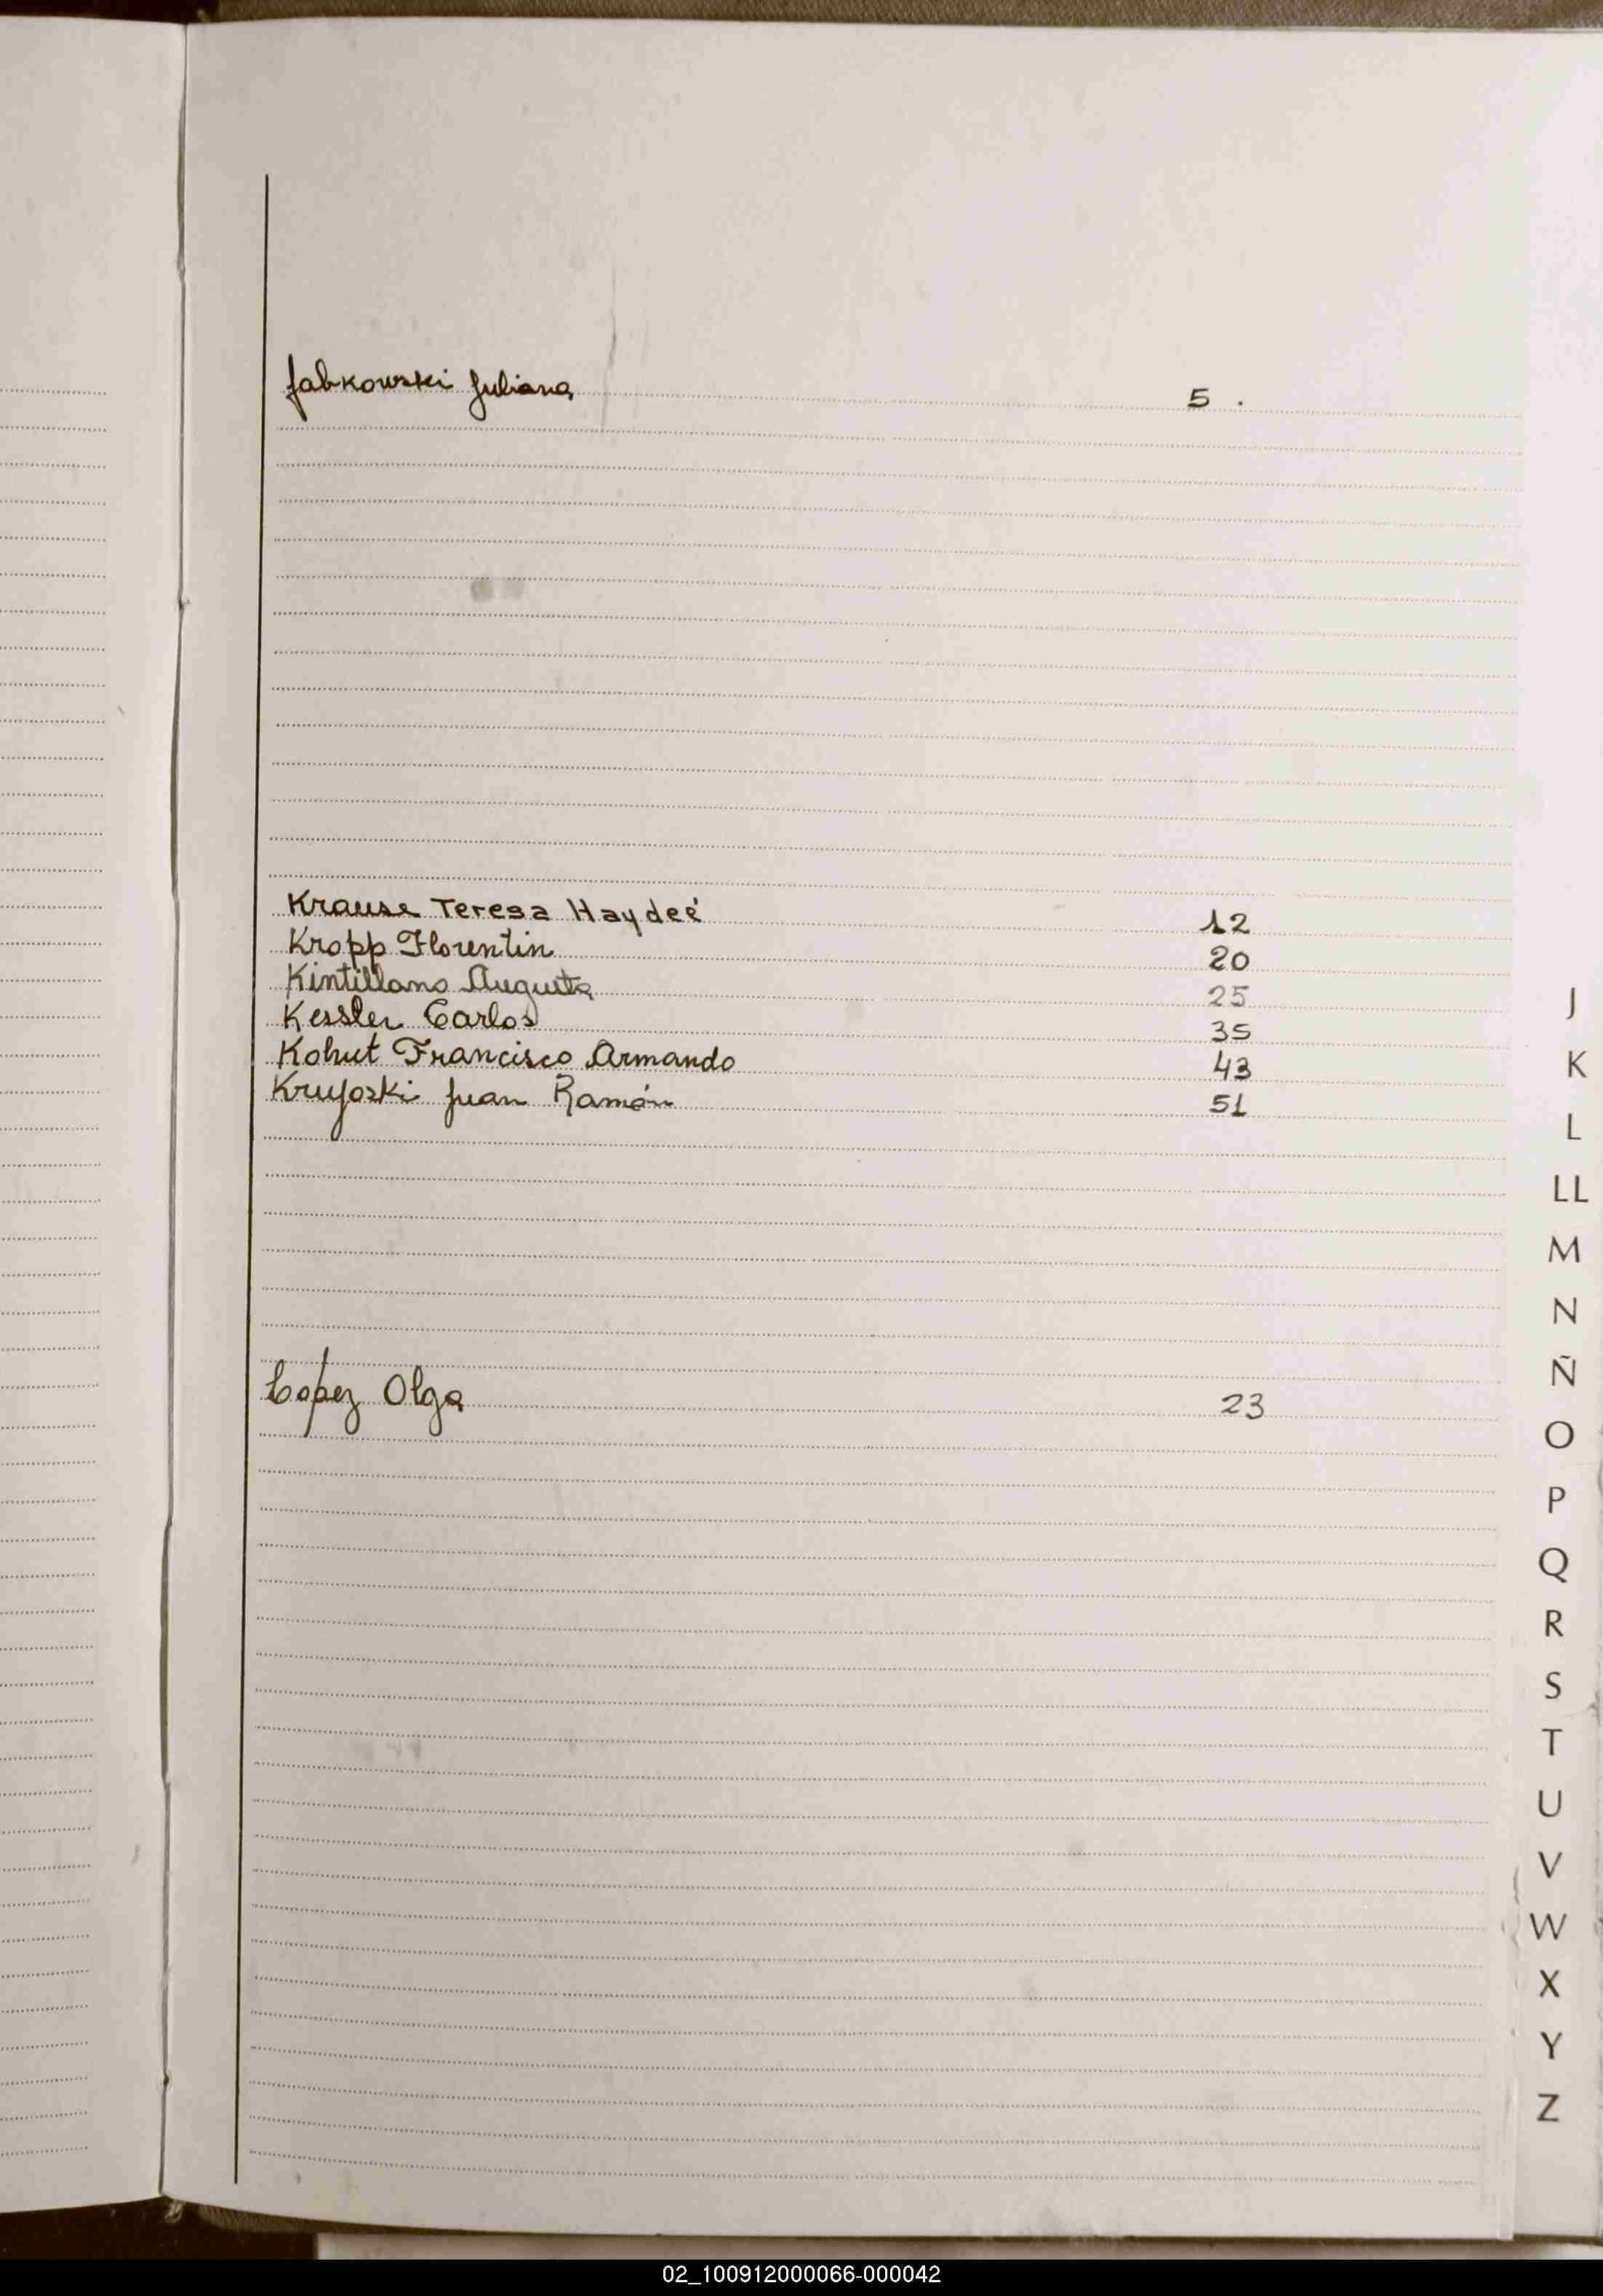 Jabkowski Juliana 5 .
Krause Teresa Haydeé 12
Kropp Florentin 20
Kintillano Augusta 25
Kessler Carlos 35
Kohut Francisco Armando 43
Kruyoski Juan Ramón 51
Lopez Olga 23
J
K
L
LL
M
N
Ñ
O
P
Q
R
S
T
U
V
W
X
Y
Z
02_100912000066-000042